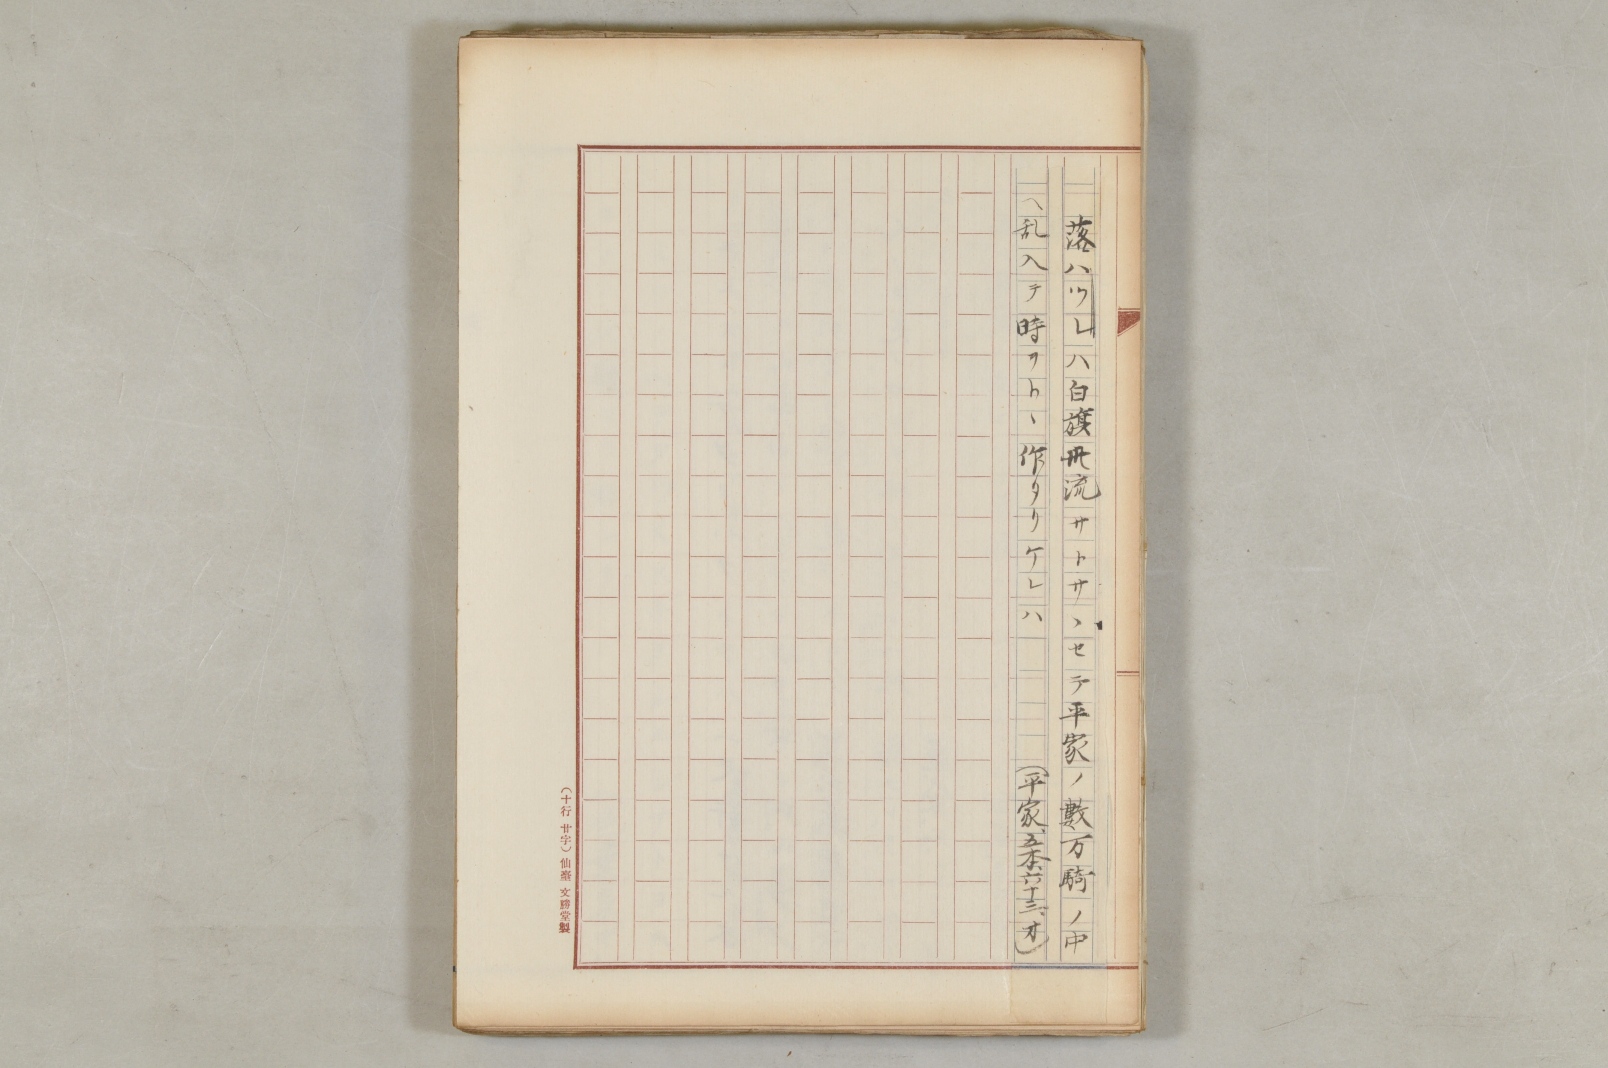 落ハツレハ白旗卅流サトサヽセテ平家ノ數万騎ノ中
ヘ乱入テ時ヲトヽ作タリケレハ
(平家、五本、六十三、オ)
(十行 廿字) 仙臺 文勝堂製